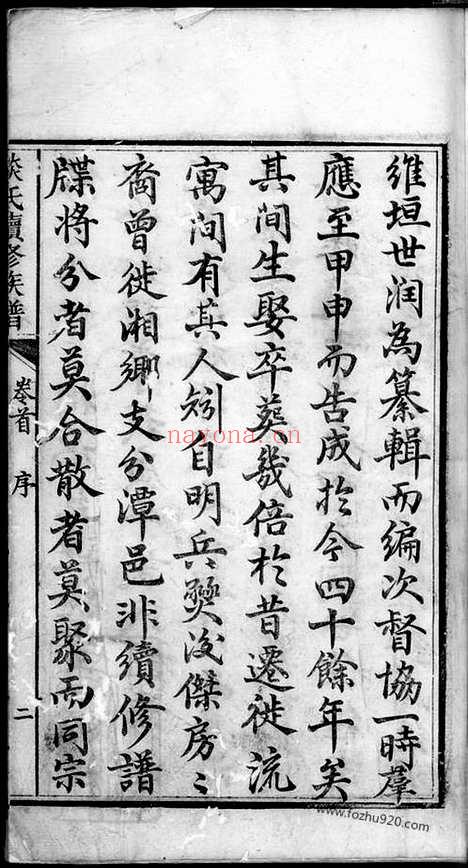 維垣世润為纂輯而編次督協一時羣
應至甲申而告成於今四十餘年矣
其间生娶卒葬幾倍於昔遷徙流
寓间有其人矧自明兵燹後傑房〻
裔曾徙湘鄉支分潭邑非續修譜
牒将分者莫合散者莫聚而同宗
氏續修族譜
卷首
序
二
nayona.cn
www.fozhu920.com